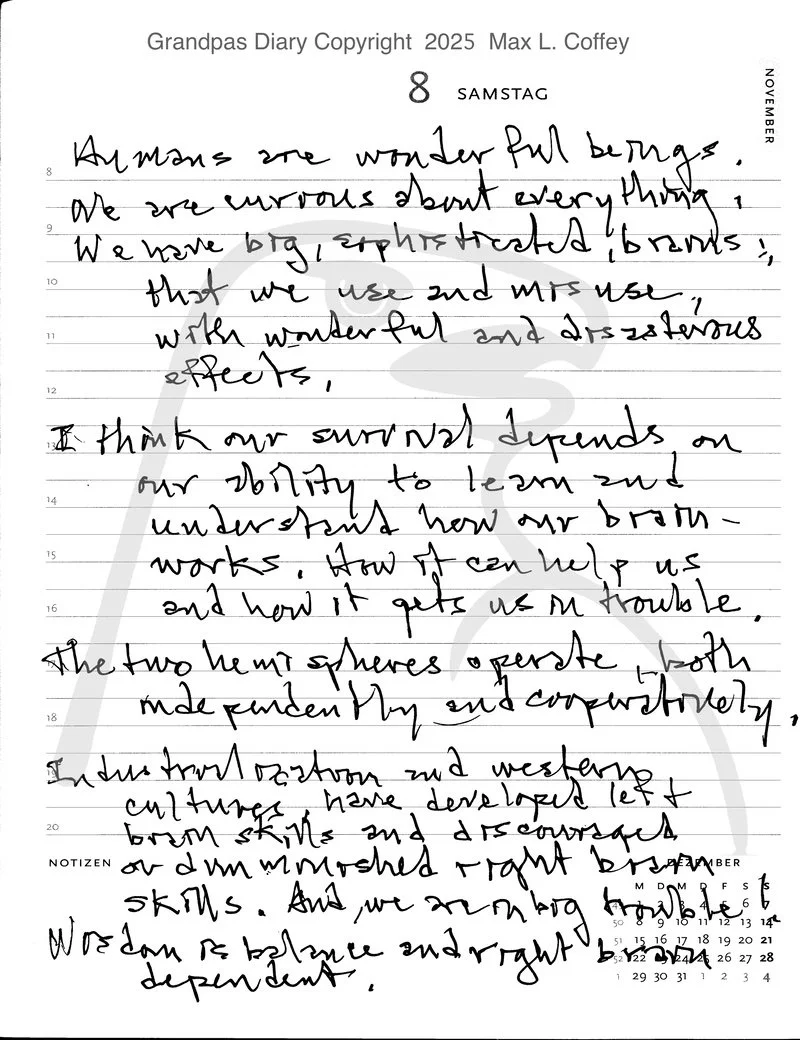 Grandpas Diary Copyright 2025 Max L. Coffey
8 SAMSTAG
NOVEMBER
Humans are wonderful beings.
We are curious about everything,
We have big, sophisticated, brains,
that we use and misuse,
with wonderful and disasterous
effects.
I think our survival depends on
our ability to learn and
understand how our brain-
works. How it can help us
and how it gets us in trouble.
The two hemispheres operate, both
independently and cooperatively.
Industrialization and western
cultures, have developed left
brain skills and discouraged
or dimminished right brain
skills. And, we are in big trouble!
Wisdom is balance and right brain
dependent.
8
9
10
11
12
13
14
15
16
18
20
NOTIZEN
DEZEMBER
M D M D F S S
1 2 3 4 5 6 7
50 8 9 10 11 12 13 14
51 15 16 17 18 19 20 21
52 22 23 24 25 26 27 28
1 29 30 31 1 2 3 4